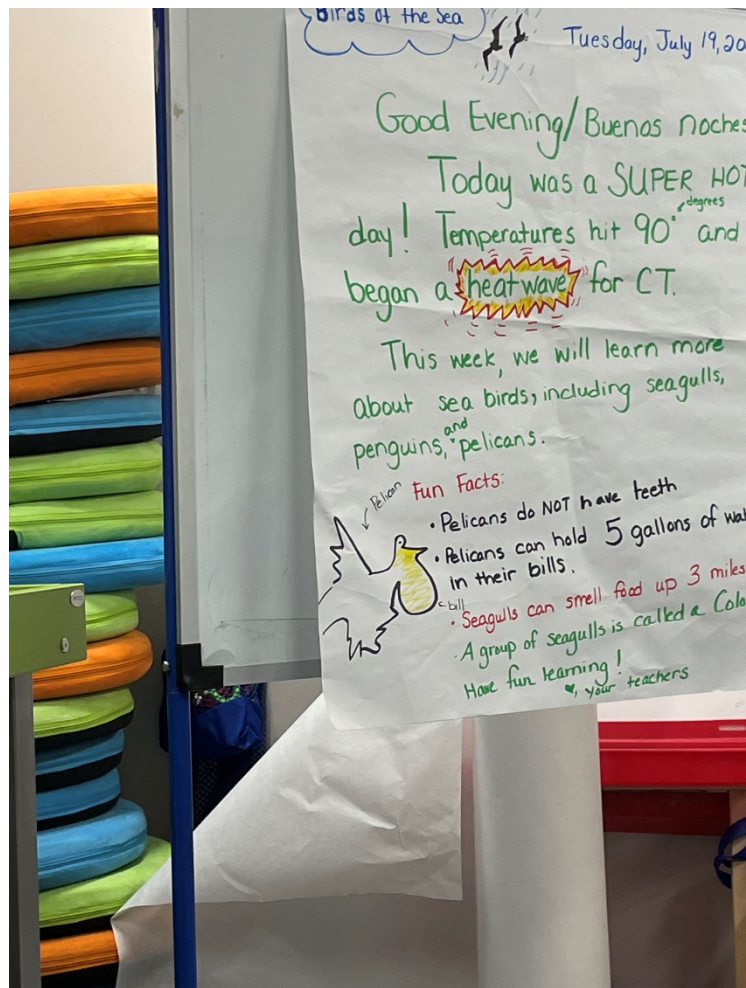 Birds of the Sea
Tuesday, July 19, 20
Good Evening/Buenos noches
Today was a SUPER HOT
degrees
day! Temperatures hit 90° and
began a heatwave for CT.
This week, we will learn more
about sea birds, including seagulls,
and
penguins, pelicans.
Pelican
Fun Facts:
• Pelicans do NOT have teeth
• Pelicans can hold 5 gallons of wat
in their bills.
bill
• Seagulls can smell food up 3 miles
• A group of seagulls is called a Colo
Have fun learning!
♥, your teachers